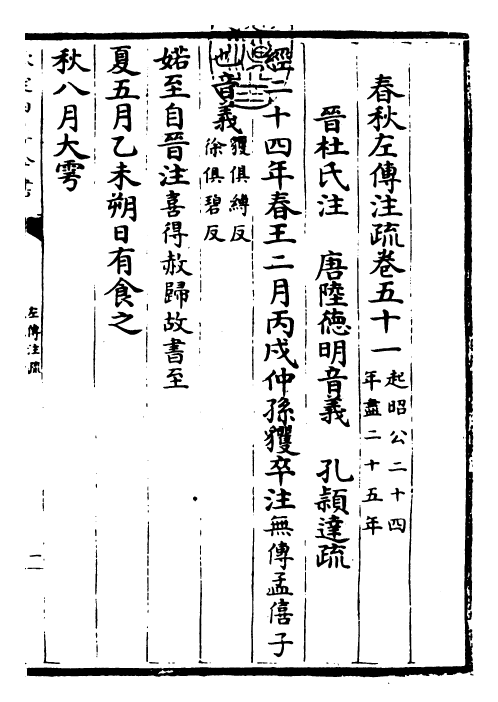 春秋左傳注疏卷五十一 起昭公二十四
年盡二十五年
晉杜氏注 唐陸德明音義 孔穎達疏
經二十四年春王二月丙戌仲孫貜卒注無傳孟僖子
也音義貜俱縛反
徐俱碧反
婼至自晉注喜得赦歸故書至
夏五月乙未朔日有食之
秋八月大雩
左傳注疏